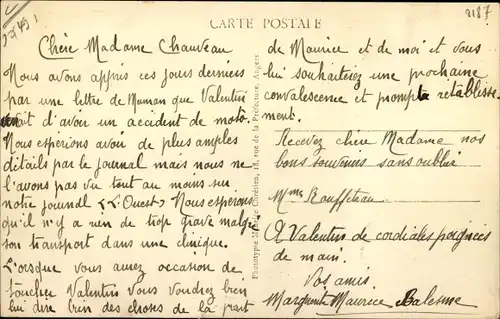 2187
CARTE POSTALE
Chère Madame Chauveau
Nous avons appris ces jours derniers
par une lettre de Maman que Valentin
avait d'avoir un accident de moto.
Nous esperions avoir de plus amples
détails par le journal mais nous ne
l'avons pas vu tout au moins sur
notre journal "L'Ouest" Nous esperons
qu'il n'y a rien de trop grave malgré
son transport dans une clinique.
Lorsque vous aurez occasion de
toucher Valentin vous voudrez bien
lui dire bien des choses de la part
Phototypie Chrétien, 18, rue de la Préfecture, Angers
de Maurice et de moi et vous
lui souhaiterez une prochaine
convalescence et prompt retablisse
ment.
Recevez chère Madame nos
bons souvenirs sans oublier
Mme Rouffeteau
A Valentin de cordiales poignées
de main.
Vos amis.
Marguerite Maurice